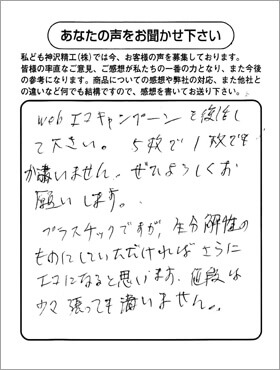 あなたの声をお聞かせ下さい
私ども神沢精工(株)では今、お客様の声を募集しております。
皆様の率直なご意見、ご感想が私たちの一番の力となり、また今後
の参考になります。商品についての感想や弊社の対応、また他社と
の違いなど何でも結構ですので、感想を書いてお送り下さい。
webエコキャンペーンを復活し
て下さい。5枚で1枚でも
構いません。ぜひよろしくお
願いします。
プラスチックですが、生分解性の
ものにしていただければさらに
エコになると思います。値段は
ウマ張っても構いません。